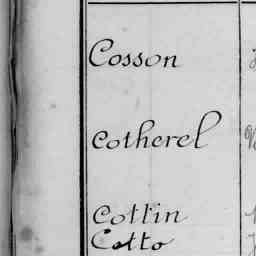 Cosson
Cotherel
Cottin
Cotto